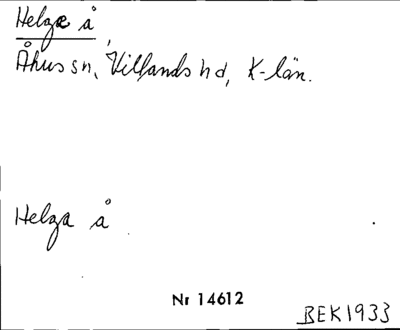 Helge å,
Åhus sn, Villands hd, K-län.
Helga å
Nr 14612
BEK1933